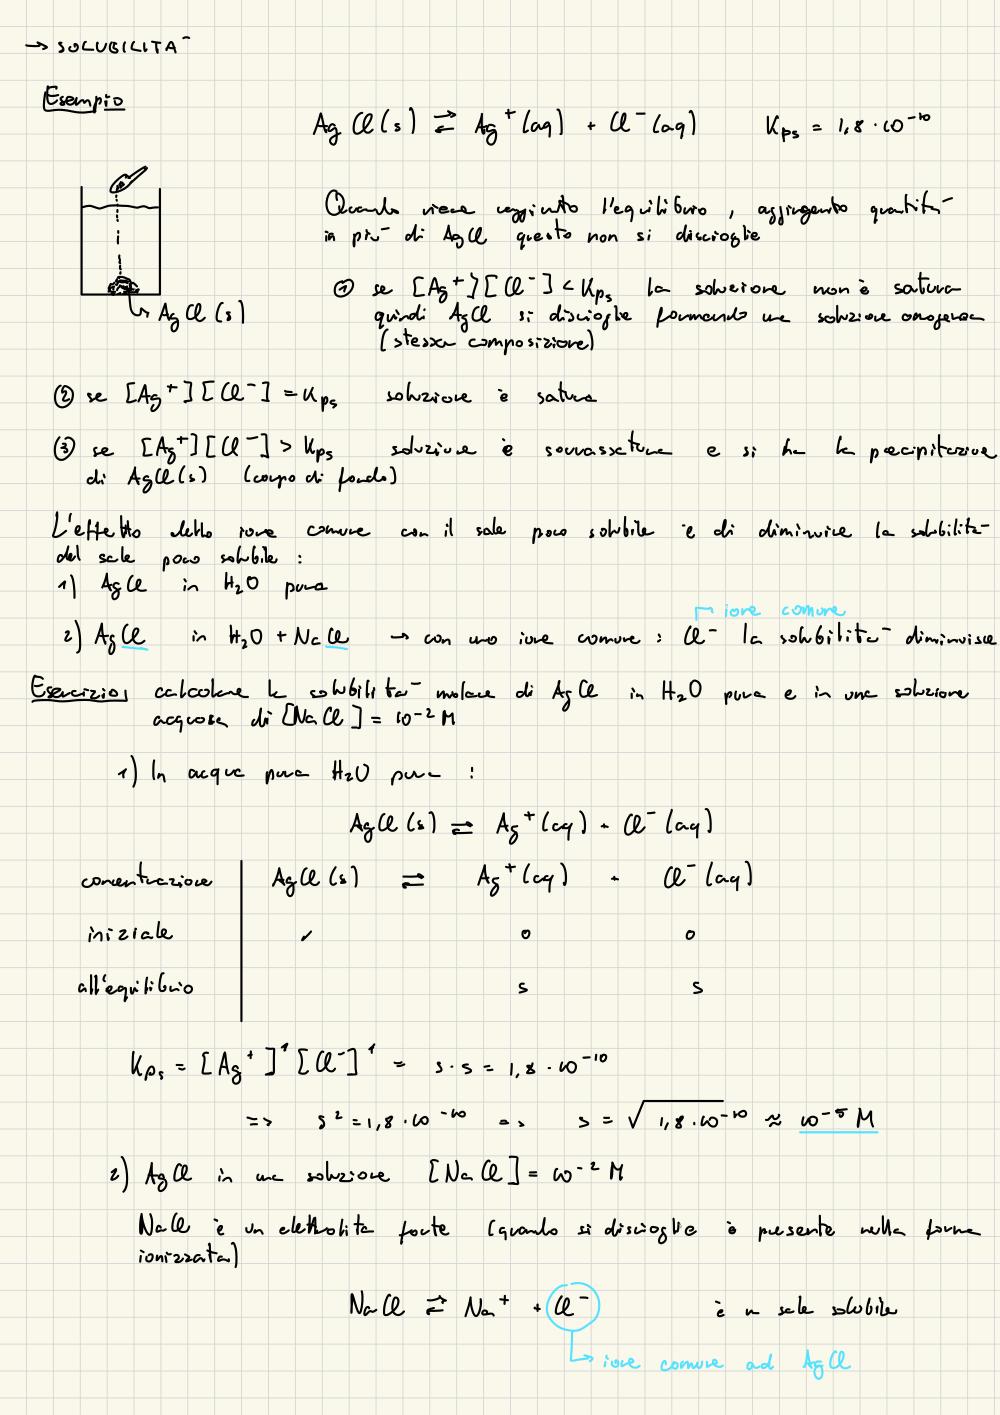 → SOLUBILITA-
Esempio
AgCl(s) ⇄ Ag⁺(aq) + Cl⁻(aq) Kps = 1,8·10⁻¹⁰
Quando viene raggiunto l'equilibrio, aggiungendo quantità
in più di AgCl questo non si discioglie
→ AgCl(s)
① se [Ag⁺][Cl⁻] < Kps la soluzione non è satura
quindi AgCl si discioglie formando una soluzione omogenea
(stessa composizione)
② se [Ag⁺][Cl⁻] = Kps soluzione è satura
③ se [Ag⁺][Cl⁻] > Kps soluzione è sovrassatura e si ha la precipitazione
di AgCl(s) (corpo di fondo)
L'effetto dello ione comune con il sale poco solubile è di diminuire la solubilità
del sale poco solubile :
1) AgCl in H₂O pura
ione comune
2) AgCl in H₂O + NaCl → con uno ione comune : Cl⁻ la solubilità diminuisce
Esercizio, calcolare la solubilità molare di AgCl in H₂O pura e in una soluzione
acquosa di [NaCl] = 10⁻² M
1) In acqua pura H₂O pura :
AgCl(s) ⇄ Ag⁺(aq) + Cl⁻(aq)
concentrazione AgCl(s) ⇄ Ag⁺(aq) + Cl⁻(aq)
iniziale / 0 0
all'equilibrio s s
Kps = [Ag⁺]¹[Cl⁻]¹ = s·s = 1,8·10⁻¹⁰
=> s² = 1,8·10⁻¹⁰ => s = √1,8·10⁻¹⁰ ≈ 10⁻⁵ M
2) AgCl in una soluzione [NaCl] = 10⁻² M
NaCl è un elettrolita forte (quando si discioglie è presente nella forma
ionizzata)
NaCl ⇄ Na⁺ + Cl⁻ è un sale solubile
→ ione comune ad AgCl